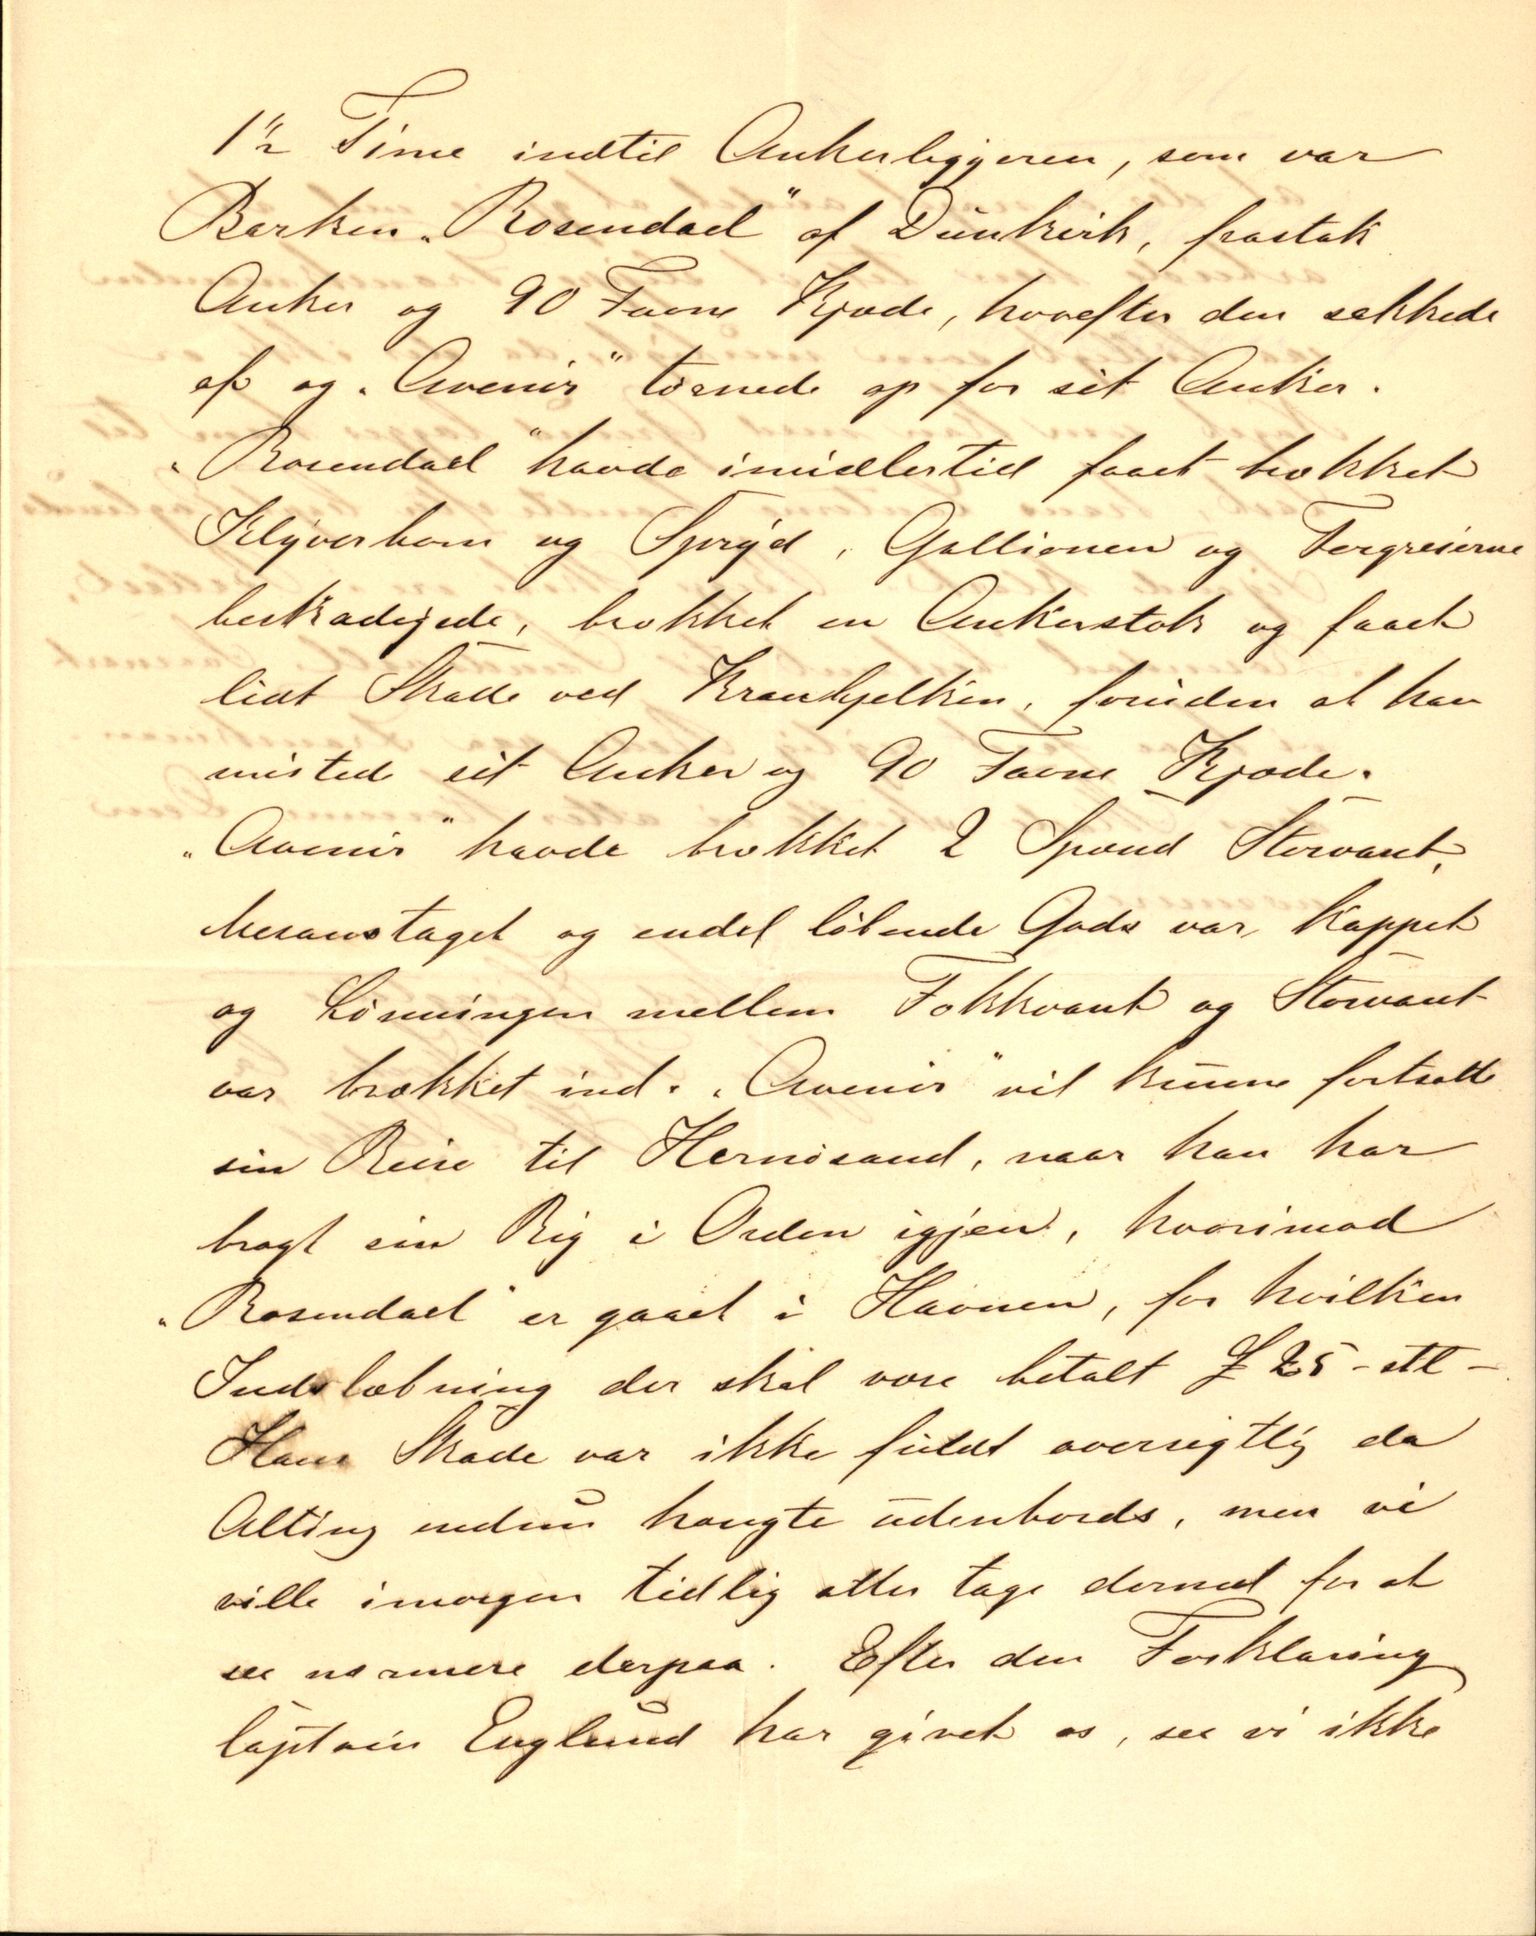 1½ Time indtil Ankerliggeren, som var
Barken „Rosendael" af Dünkirk, frastak
Anker og 90 Favne Kjæde, hvorefter den sækkede
af og „Avenir" tørnede op for sit Anker.
„Rosendael" havde imidlertid faaet brækket
Klyverbom og Spryd, Gallionen og
beskadigede, brækket en Ankerstok og faaet
lidt Skade ved Kranbjelken, foruden at han
mistede sit Anker og 90 Favne Kjæde.
„Avenir" havde brækket 2 Spænd Storvant,
Mesanstaget og endel løbende Gods var kappet
og Lønningen mellem Fokkvant og Storvant
var brækket ind. „Avenir" vil kunne fortsætte
sin Reise til Hernøsand, naar han har
bragt sin Rig i Orden igjen, hvorimod
„Rosendael" er gaaet i Havnen, for hvilken
Indslæbning der skal være betalt £ 25 –
Hans Skade var ikke fuldt oversigtlig da
Alting endnu hængte udenbords, men vi
ville imorgen tidlig atter tage derned for at
see nærmere derpaa. Efter den Forklaring
Captain Englund har givet os, see vi ikke